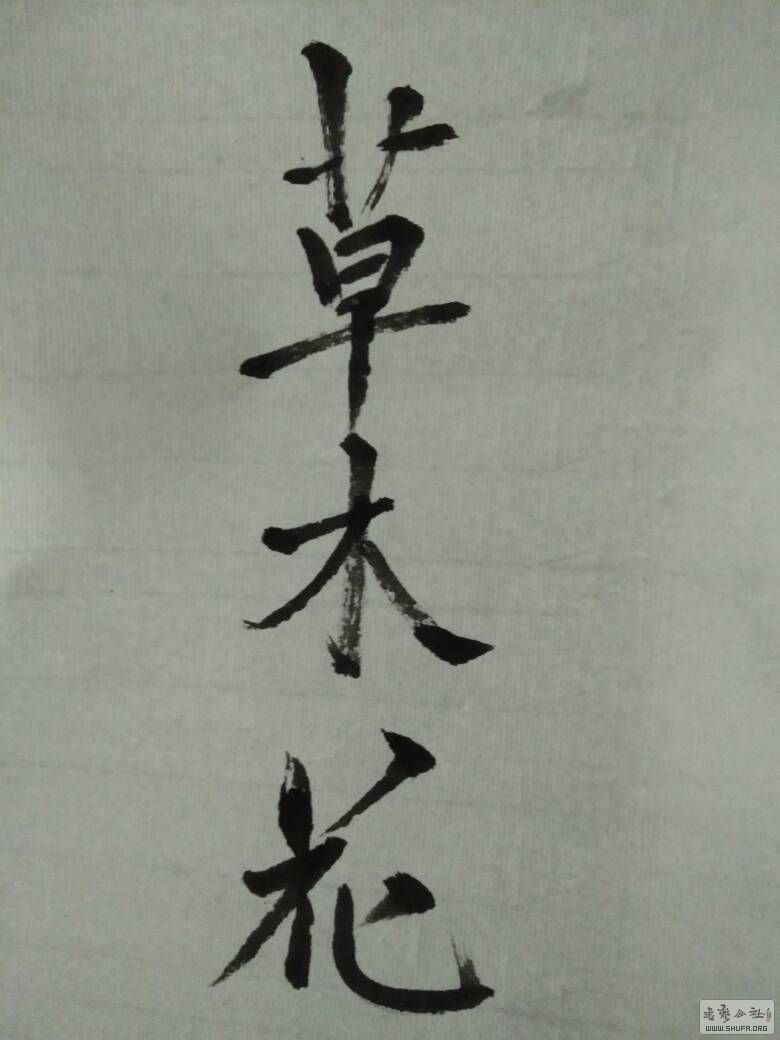 草木花
书艺公社
WWW.SHUFA.ORG